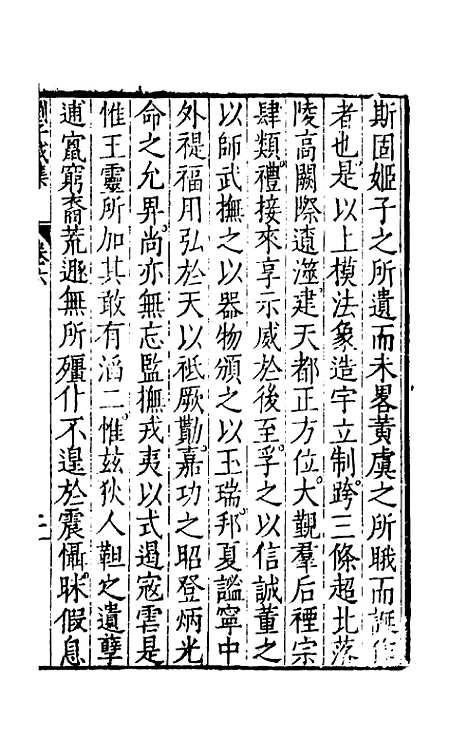 斯固姬子之所遺而未畧黃虞之所睋而誕
者也是以上模法象造宇立制跨三條超北落
陵高闕際遠澨建天都正方位大觀羣后禋宗
肆類禮接來享示威於後至孚之以信誠董之
以師武撫之以器物頒之以玉瑞邦夏謐寧中
外禔福用弘於天以祗厥勤嘉功之昭登炳光
命之允畀尚亦無忘監撫戎夷以式遏寇雲是
惟王靈所加其敢有滔二惟兹狄人靼之遺孽
逋竄窮裔荒遯無所殭仆不遑於震懾眯假息
子威集
卷六